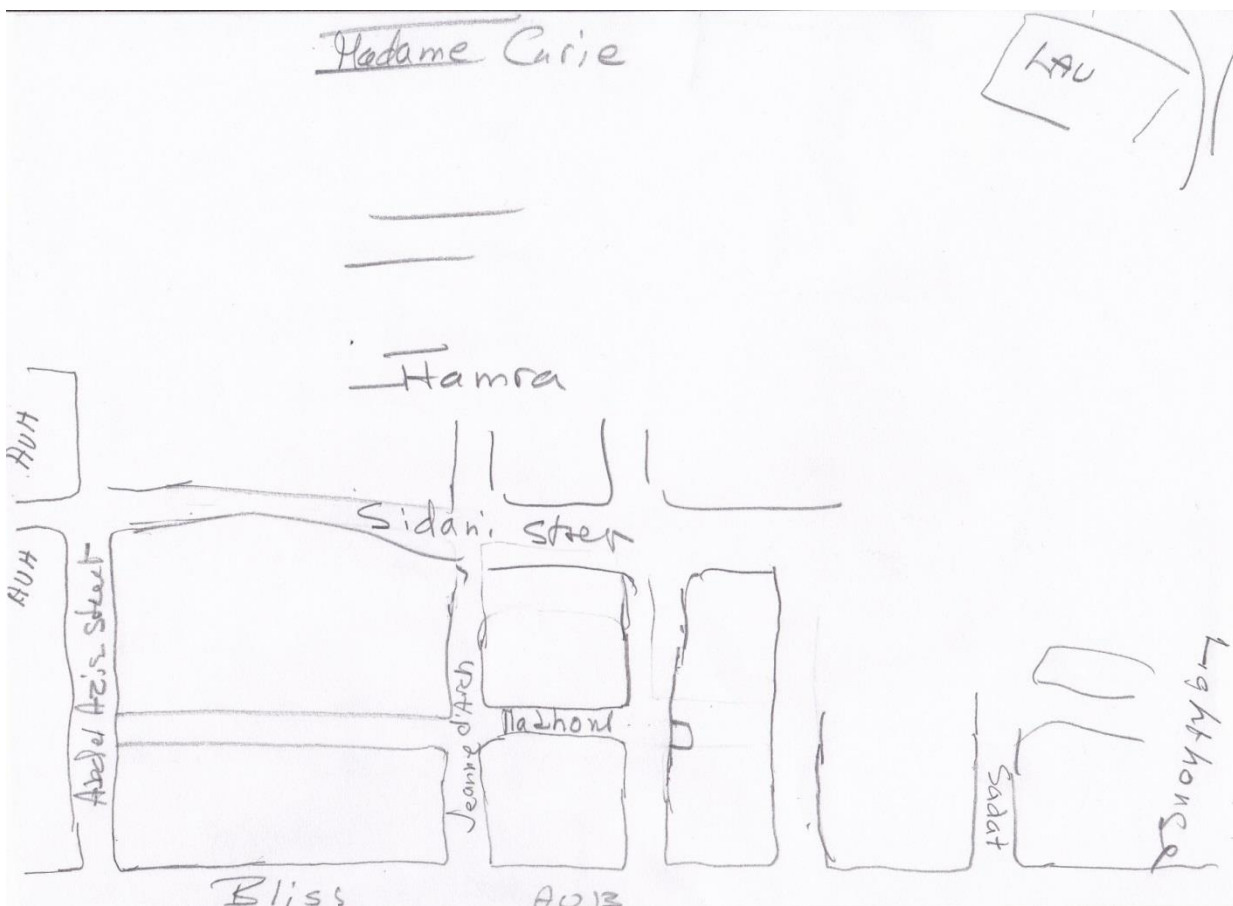 Madame Curie
LAU
Hamra
AUH
Sidani Street
AUH
Abdel Aziz Street
Jeanne d'Arch
Makhoul
Sadat
Lighthouse
Bliss
AUB